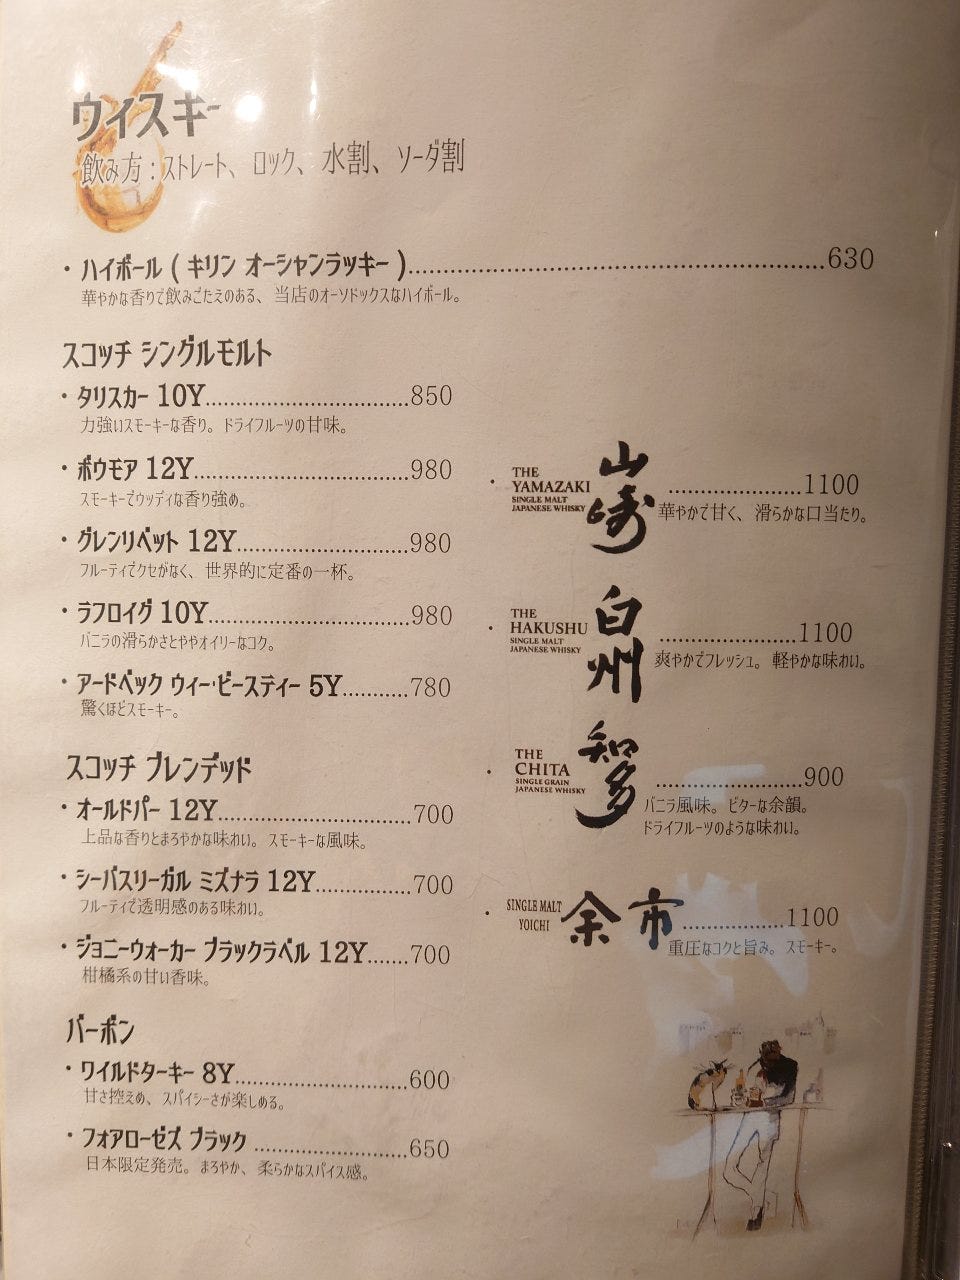 ウィスキー
飲み方：ストレート、ロック、水割、ソーダ割
・ハイボール ( キリン オーシャンラッキー )..............................................................630
華やかな香りで飲みごたえのある、当店のオーソドックスなハイボール。
スコッチ シングルモルト
・タリスカー 10Y..............................850
力強いスモーキーな香り。ドライフルーツの甘味。
・ボウモア 12Y................................980
スモーキーでウッディな香り強め。
・グレンリベット 12Y.........................980
フルーティでクセがなく、世界的に定番の一杯。
・ラフロイグ 10Y..............................980
バニラの滑らかさとややオイリーなコク。
・アードベック ウィー・ビースティー 5Y..........780
驚くほどスモーキー。
スコッチ ブレンデッド
・オールドパー 12Y............................700
上品な香りとまろやかな味わい。スモーキーな風味。
・シーバスリーガル ミズナラ 12Y..............700
フルーティで透明感のある味わい。
・ジョニーウォーカー ブラックラベル 12Y......700
柑橘系の甘い香味。
バーボン
・ワイルドターキー 8Y.........................600
甘さ控えめ、スパイシーさが楽しめる。
・フォアローゼズ ブラック ......................650
日本限定発売。まろやか、柔らかなスパイス感。
・THE YAMAZAKI
SINGLE MALT
JAPANESE WHISKY
山崎 ....................1100
華やかで甘く、滑らかな口当たり。
・THE HAKUSHU
SINGLE MALT
JAPANESE WHISKY
白州 ....................1100
爽やかでフレッシュ。軽やかな味わい。
・THE CHITA
SINGLE GRAIN
JAPANESE WHISKY
知多 ......................900
バニラ風味。ビターな余韻。
ドライフルーツのような味わい。
・SINGLE MALT
YOICHI
余市 ...............1100
重圧なコクと旨み。スモーキー。